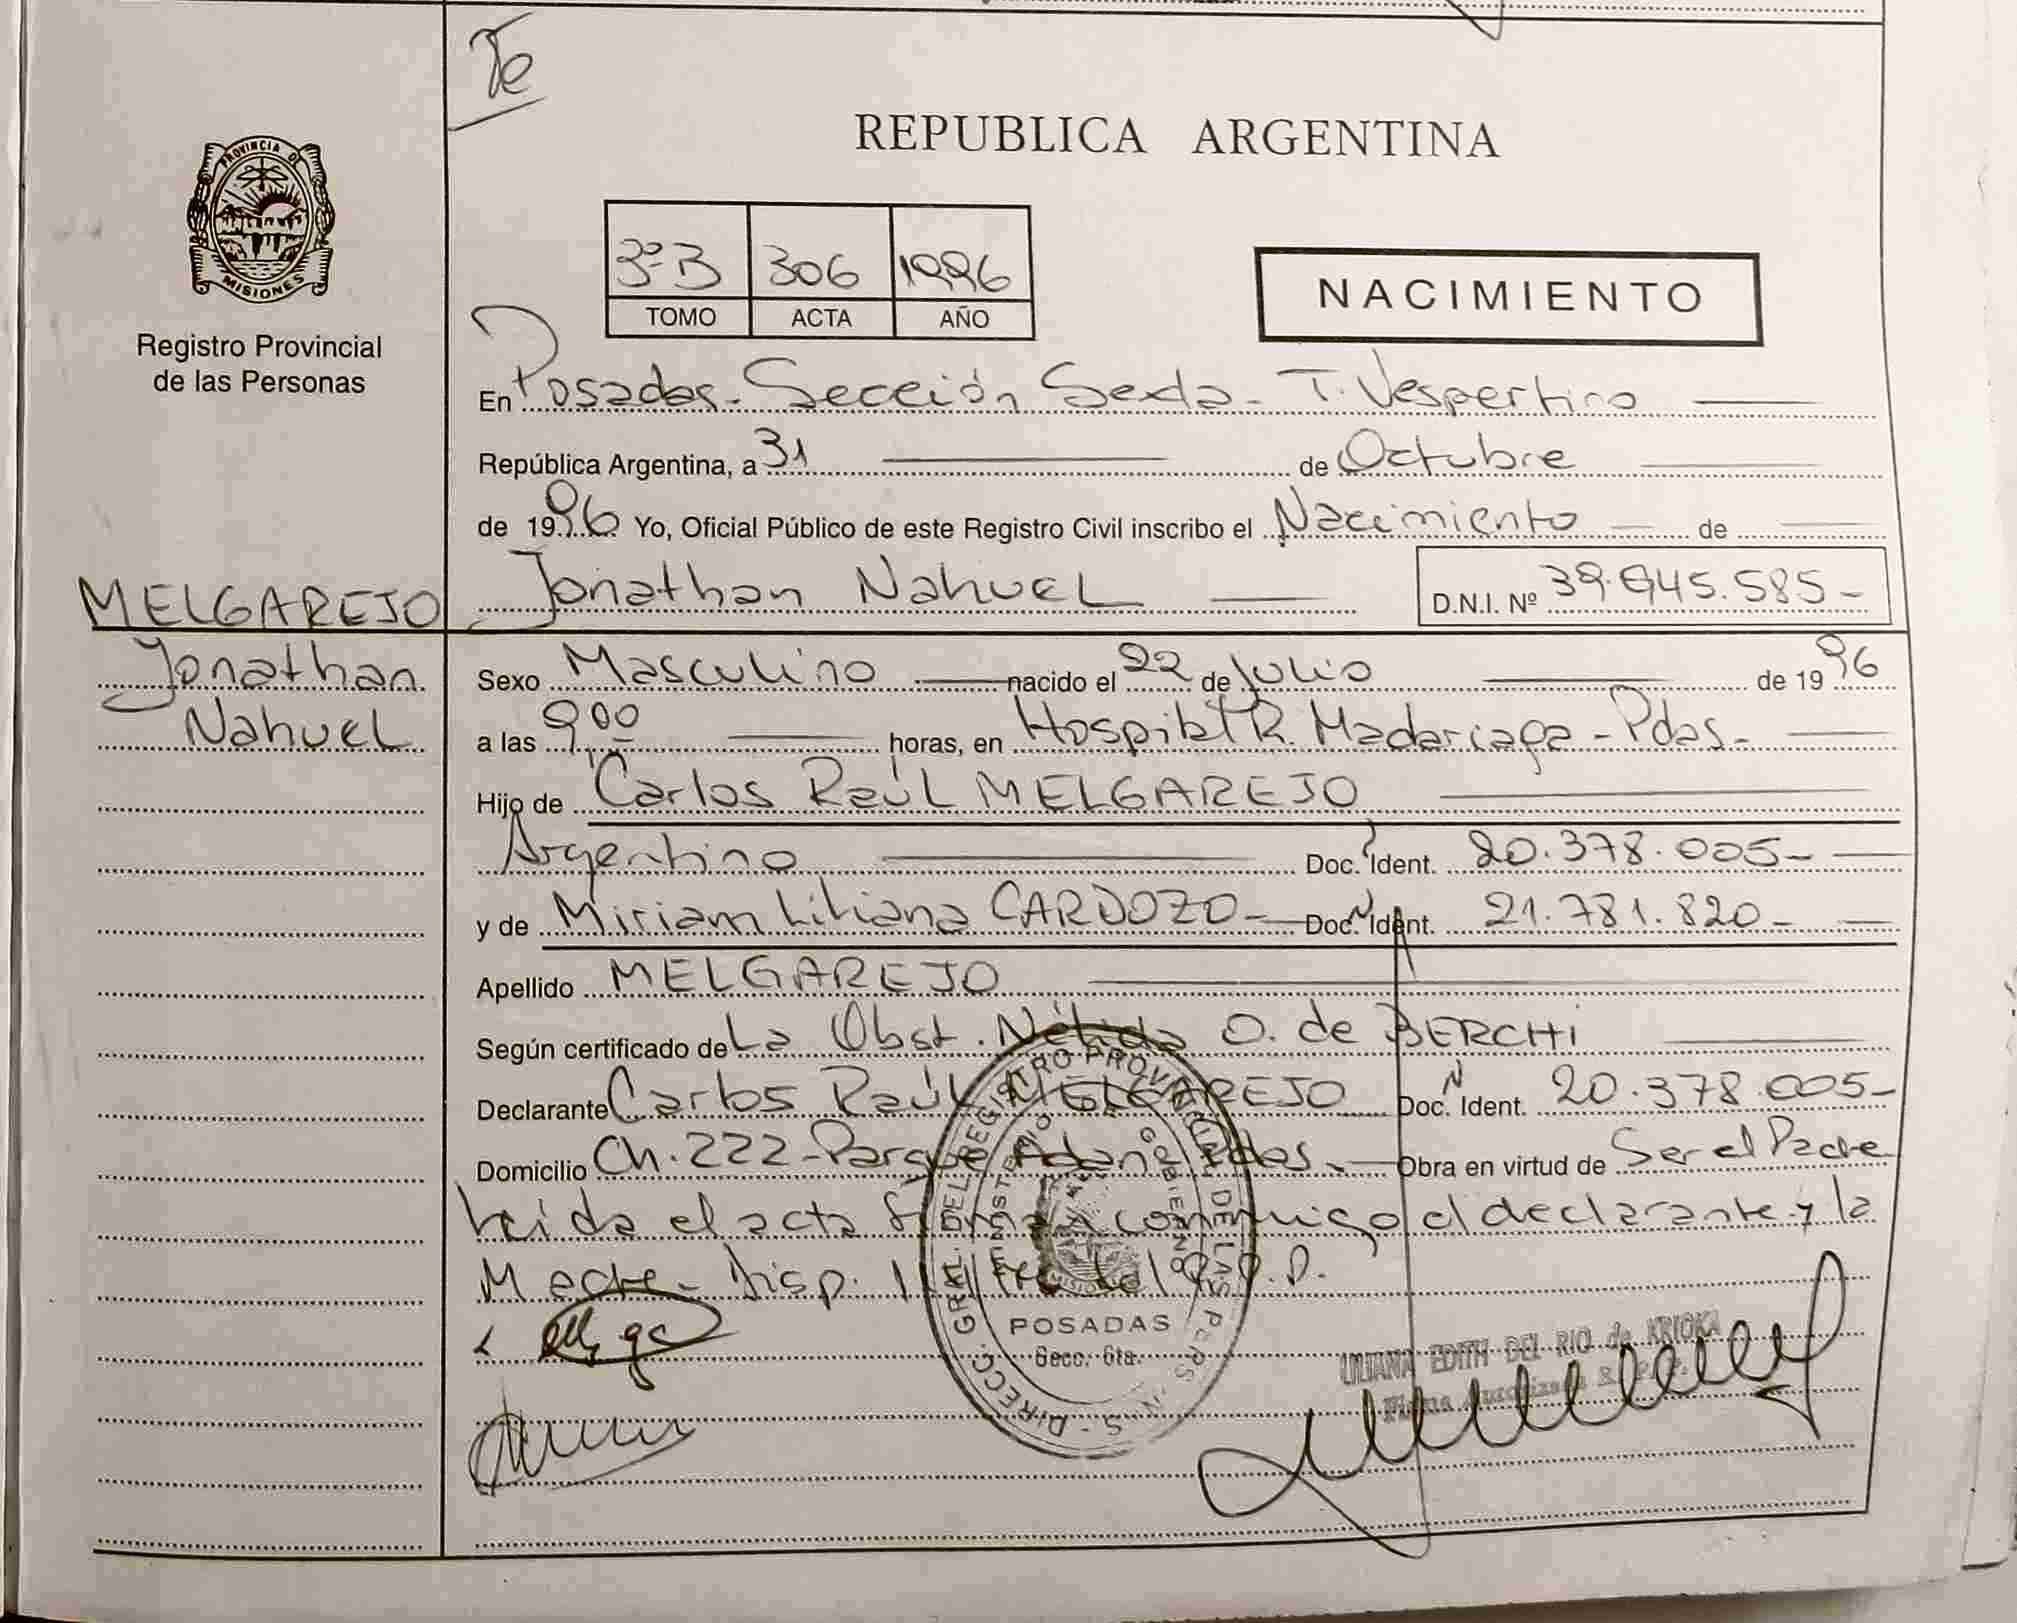 Te
REPUBLICA ARGENTINA
PROVINCIA DE
MISIONES
Registro Provincial
de las Personas
3º B 306 1996
TOMO ACTA AÑO
NACIMIENTO
En Posadas - Sección Sexta - T. Vespertino
República Argentina, a 31 de Octubre
de 1996 Yo, Oficial Público de este Registro Civil inscribo el Nacimiento de
MELGAREJO Jonathan Nahuel D.N.I. Nº 39.945.585-
Jonathan
Nahuel
Sexo Masculino nacido el 22 de Julio de 1996
a las 9,00 horas, en Hospital R. Madariaga - Pdas-
Hijo de Carlos Raúl MELGAREJO
Argentino Doc. Ident. 20.378.005-
y de Miriam Liliana CARDOZO- Doc. Ident. 21.781.820-
Apellido MELGAREJO
Según certificado de La Obst. Nélida O. de BERCHI
Declarante Carlos Raúl MELGAREJO Doc. Ident. 20.378.005-
Domicilio Ch. 222 - Parque Adam Pdas. Obra en virtud de Ser el Padre
Leida el acta firman conmigo el declarante y la
Madre- Disp.
DIRECC. GRAL. DEL REGISTRO PROVINCIAL DE LAS PERSONAS
MINISTERIO GOBIERNO
POSADAS
Secc. 6ta.
LILIANA EDITH DEL RIO de KRIOKA
Firma Autorizada